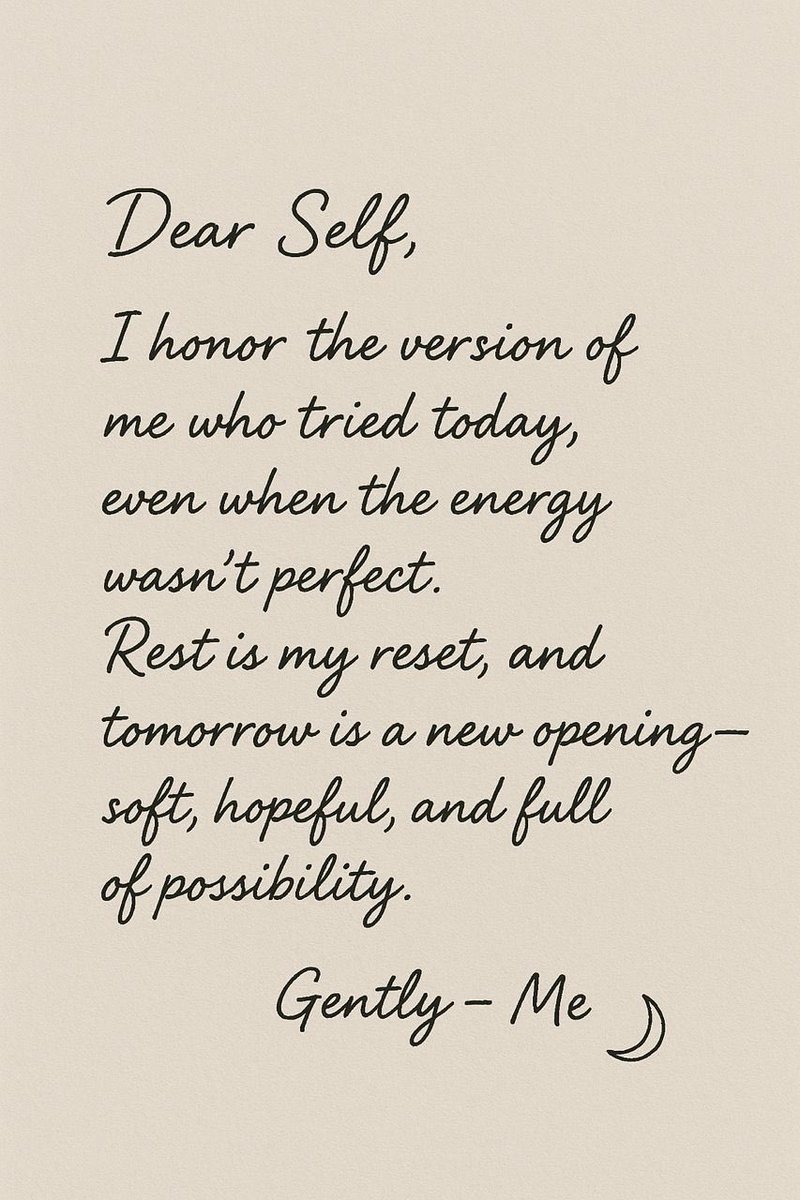 Dear Self,
I honor the version of
me who tried today,
even when the energy
wasn't perfect.
Rest is my reset, and
tomorrow is a new opening—
soft, hopeful, and full
of possibility.
Gently – Me